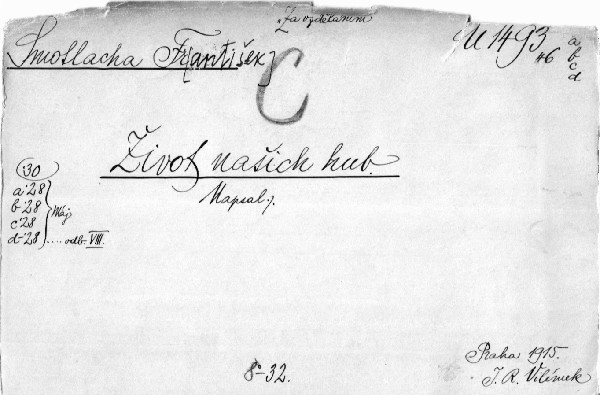 "Za vzděláním
Smotlacha F[rantišek]
U 1493
46
a
b
c
d
C
Život našich hub.
Napsal ·/.
30
a·28
b·28
c·28
d·28
Máj
.... odb. VIII.
8°-32.
Praha 1915.
J. R. Vilímek